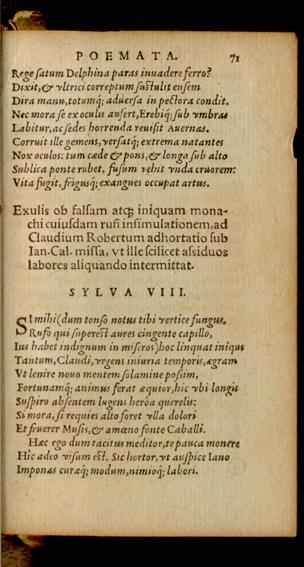 POEMATA. 71
Rege satum Delphina paras inuadere ferro?
Dixit, & vltrici correptum sustulit ensem
Dira manu, totumq; aduersa in pectora condit.
Nec mora se ex oculis aufert, Erebiq; sub vmbras
Labitur, ac sedes horrenda reuisit Auernas.
Corruit ille gemens, versatq; extrema natantes
Nox oculos: tum cæde & pons, & longa sub alto
Sublica ponte rubet, fusum vehit vnda cruorem:
Vita fugit, frigusq; exangues occupat artus.
Exulis ob falsam atq; iniquam mona-
chi cuiusdam rufi insimulationem, ad
Claudium Robertum adhortatio sub
Ian. Cal. missa, vt ille scilicet assiduos
labores aliquando intermittat.
SYLVA VIII.
SI mihi (dum tonso notus tibi vertice fungus,
Rufo qui superest aures cingente capillo,
Ius habet indignum in miseros) hoc linquat iniqui
Tantum, Claudi, vrgens iniuria temporis, ægram
Vt lenire nouo mentem solamine possim,
Fortunamq; animus ferat æquior, hic vbi longis
Suspiro absentem lugens heroa querelis:
Si mora, si requies alto foret vlla dolori
Et fruerer Musis, & amœno fonte Caballi.
Hæc ego dum tacitus meditor, te pauca monere
Hic adeo visum est. Sic hortor, vt auspice Iano
Imponas curæq; modum, nimioq; labori.